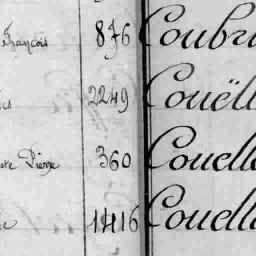 François 876 Coubr
2249 Couëll
Pierre 360 Couelle
1416 Couella